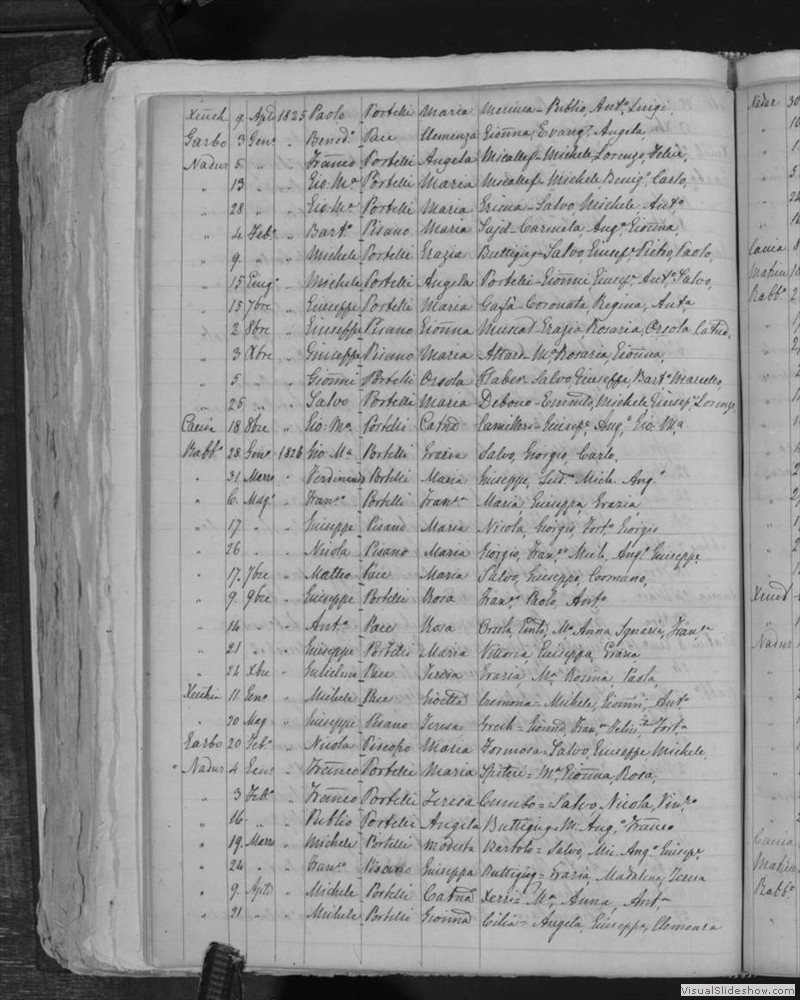 Xeuch 9 Aple 1825 Paolo Portelli Maria Publio, Ant.o Luigi,
Garbo 3 Gen.o " Bened.o Pace Clemenza Gionna, Evang.a Angela,
Nadur 5 " " Franco Portelli Angela Micallef - Michele, Lorenzo, Felice,
" 13 " " Gio: M.a Portelli Maria Micallef - Michele, Benig.o Carlo,
" 28 " " Gio: M.a Portelli Maria Grima - Salvo, Michele, Ant.o
" 4 Feb.o " Bart.o Pisano Maria Sajd - Carmela, Aug.a Gionna,
" 9 " " Michele Portelli Grazia Buttigieg - Salvo, Giusep.e Pietro, Paolo,
" 15 Giug.o " Michele Portelli Angela Portelli - Gionni, Giusep.e Ant.o Salvo,
" 15 7bre " Giuseppe Portelli Maria Gafà - Coronata, Regina, Ant.a
" 2 8bre " Giuseppe Pisano Gionna Muscat - Grazia, Rosaria, Orsola Catnd.
" 3 Xbre " Giuseppe Pisano Maria Attard - M.a Rosaria, Gionna,
" 5 " " Gionni Portelli Orsola Salvo, Giuseppe, Bart.o Marcello,
" 25 " " Salvo Portelli Maria Debono - Michele, Giusep.e Lorenzo,
Caccia 18 8bre " Gio: M.a Portelli Catnd Camilleri - Giusep.e Aug.o Gio: M.a
Rabb.o 28 Gen.o 1826 Gio: M.a Portelli Grazia Salvo, Giorgio, Carlo,
" 31 Marzo " Ferdinando Portelli Maria Giuseppe, Mich. Ang.o
" 6 Mag.o " Fran.co Portelli Fran.ca Maria, Giuseppa, Grazia,
" 17 " " Giuseppe Pisano Maria Nicola, Giorgio, Fort.o Giorgio
" 26 " " Nicola Pisano Maria Giorgio, Fran.co Mich. Ang.o Giuseppe,
" 17 7bre " Matteo Pace Maria Salvo, Giuseppe,
" 9 9bre " Giuseppe Portelli Rosa Fran.co Paolo, Ant.o
" 14 " " Ant.o Pace Rosa Orsola, M.a Anna, Ignazia, Fran.ca
" 21 " " Giuseppe Portelli Maria Vittoria, Giuseppa, Grazia
" 24 Xbre " Gulielmo Pace Teresa Grazia, M.a Rosina, Paola,
11 Gen.o " Michele Pace Cremona - Michele, Gionni, Ant.o
" 20 Mag. " Giuseppe Pisano Teresa Grech - Gionna, Fran.co Fort.a
Garbo 20 Feb.o " Nicola Piscopo Maria Formosa - Salvo, Giuseppe, Michele,
" Nadur 4 Gen.o " Franco Portelli Maria Spiteri = M.a Gionna, Rosa,
" 3 Feb.o " Franco Portelli Teresa Cumbo = Salvo, Nicola, Vin.zo
" 16 " " Publio Portelli Angela Buttigieg = M. Ang.o Franco
" 19 Marzo " Michele Portelli Modesta Bartolo = Salvo, Mic. Ang.o Giusep.e
" 24 " " Fran.co Pisano Giuseppa Buttigieg = Grazia, Madalena, Teresa
" 9 Aple " Michele Portelli Catna Xerri = M.a Anna, Ant.a
" 21 " " Michele Portelli Gionna Cilia = Angela, Giuseppa, Clemenza
Nadur 30
Caccia 8
Rabb.o 2
Nadur
Rabb.o
VisualSlideshow.com